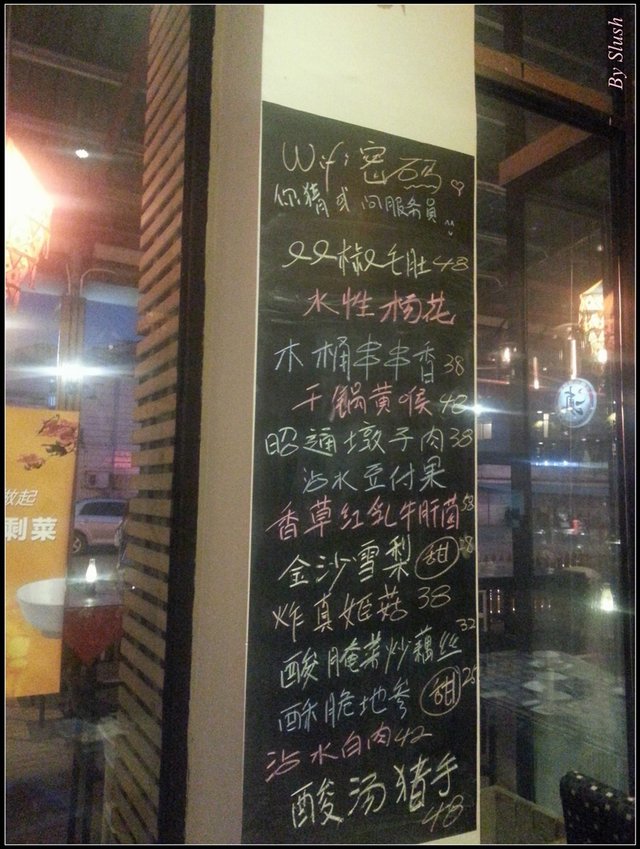 By Slush
Wifi密码
你猜或问服务员
双椒毛肚48
水性杨花
木桶串串香38
干锅黄喉48
昭通墩子肉38
沾水豆付果
香草红乳牛肝菌53
金沙雪梨 甜
炸真姬菇38
酸腌菜炒藕丝32
酥脆地参 甜
沾水白肉42
酸汤猪手
48
做起
剩菜